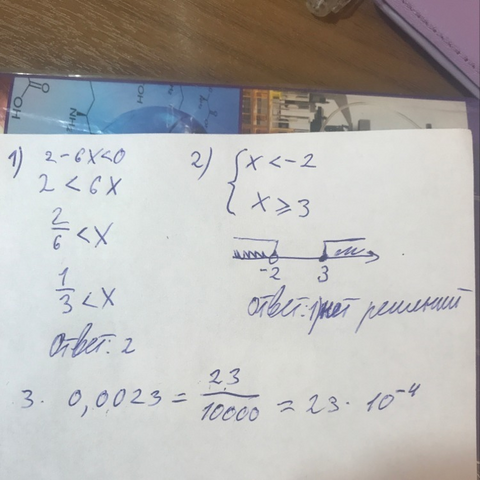 1) 2-6x<0
2 < 6x
2/6 < x
1/3 < x
Ответ: 2
2) { x < -2
x ⩾ 3
-2 3
Ответ: 1) нет решений
3. 0,0023 = 23/10000 = 23 · 10⁻⁴
OH
NH
OH